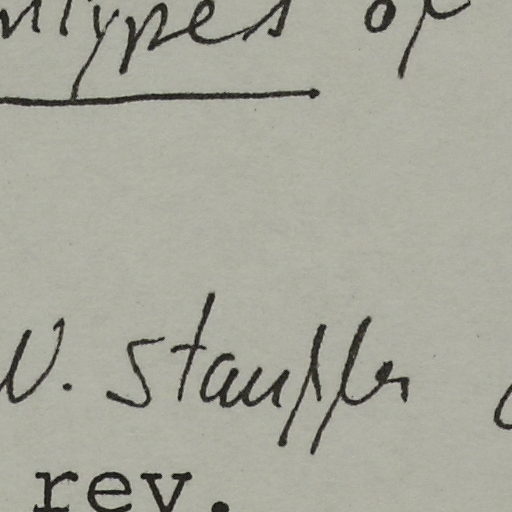 ntypes of
W. Stauffer
rev.